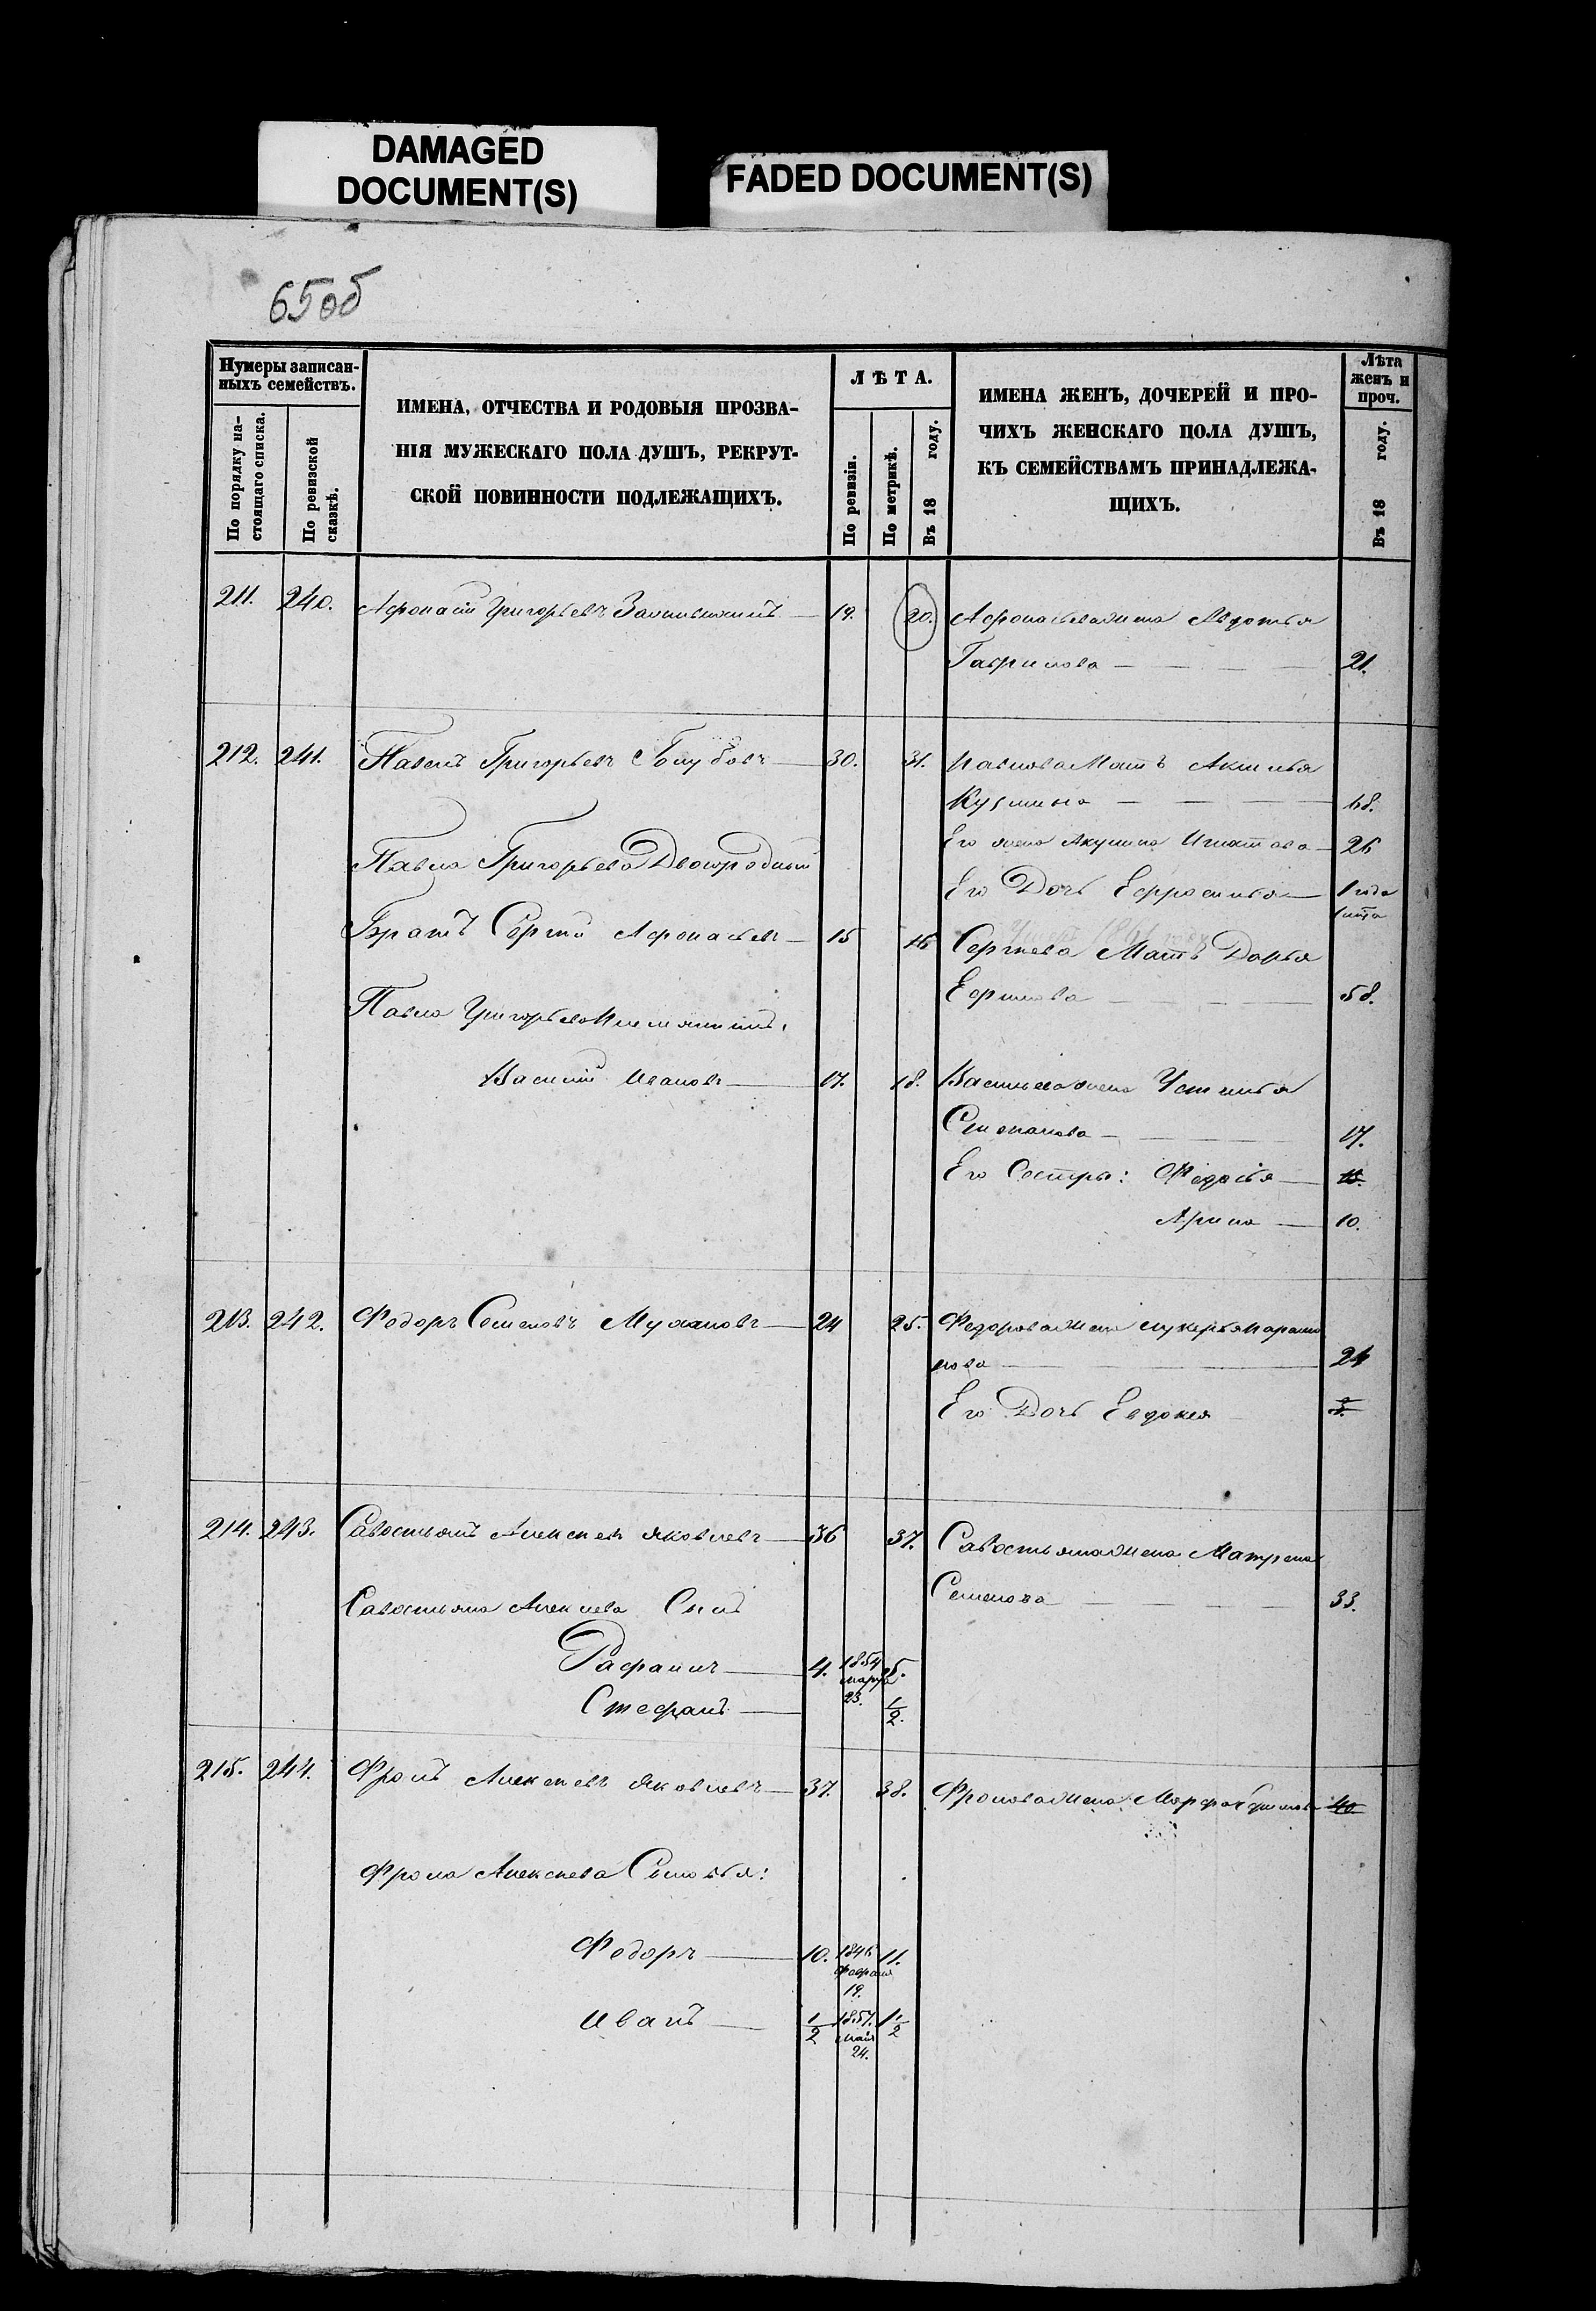 DAMAGED
DOCUMENT(S)
FADED DOCUMENT(S)
65об
Нумеры записан-
ныхъ семействъ.
По порядку на-
стоящаго списка.
По ревизской
сказкѣ.
ИМЕНА, ОТЧЕСТВА И РОДОВЫЯ ПРОЗВА-
НІЯ МУЖЕСКАГО ПОЛА ДУШЪ, РЕКРУТ-
СКОЙ ПОВИННОСТИ ПОДЛЕЖАЩИХЪ.
ЛѢТА.
По ревизіи.
По метрикѣ.
Въ 18 году.
ИМЕНА ЖЕНЪ, ДОЧЕРЕЙ И ПРО-
ЧИХЪ ЖЕНСКАГО ПОЛА ДУШЪ,
КЪ СЕМЕЙСТВАМЪ ПРИНАДЛЕЖА-
ЩИХЪ.
Лѣта
женъ и
проч.
Въ 18 году.
211. 240. Афонасій Григорьевъ 19. 20. Афонасьева жена Авдотья
Гаврилова 21.
212. 241. Павелъ Григорьевъ Голубовъ 30. 31. Павлова Мать Акилина
Кузмина 68.
Его жена Акулина Игнатова 26
Павла Григорьева Двоюродный
Его Дочь Ефросинья 1 года
Братъ Сергѣй Афонасьевъ 15 16 Сергѣева Мать Дарья
Ефимова 58.
Павла Григорьева Племянникъ
Василій Ивановъ 17. 18. Васильева жена Устинья
Степанова 17.
Его Сестры: Федосья
Арина 10.
213. 242. Федоръ Семеновъ Мухановъ 24 25. Федорова жена Лукерья
нова 24
Его Дочь Евдокея
214. 243. Савостьянъ Алексѣевъ Яковлевъ 36 37. Савостьяна жена Матрена
Савостьяна Алексѣева Сынъ
Семенова 33.
Рафаилъ 4. 1854 марта 23. 5.
Стефанъ 1/2.
215. 244. Фролъ Алексѣевъ Яковлевъ 37. 38. Фролова жена Марфа Ефимова 40
Фрола Алексѣева Сыновья:
Федоръ 10. 1846 февраля 19. 11.
Иванъ 1/2 1857. мая 24. 1 1/2